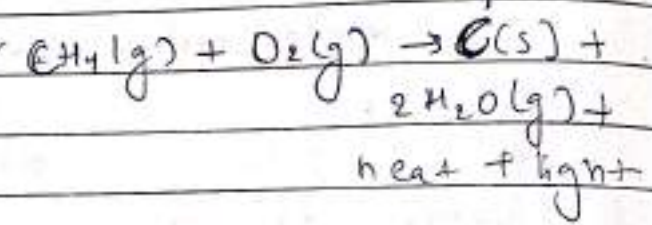 CH4(g) + O2(g) → C(s) +
2H2O(g) +
heat + light